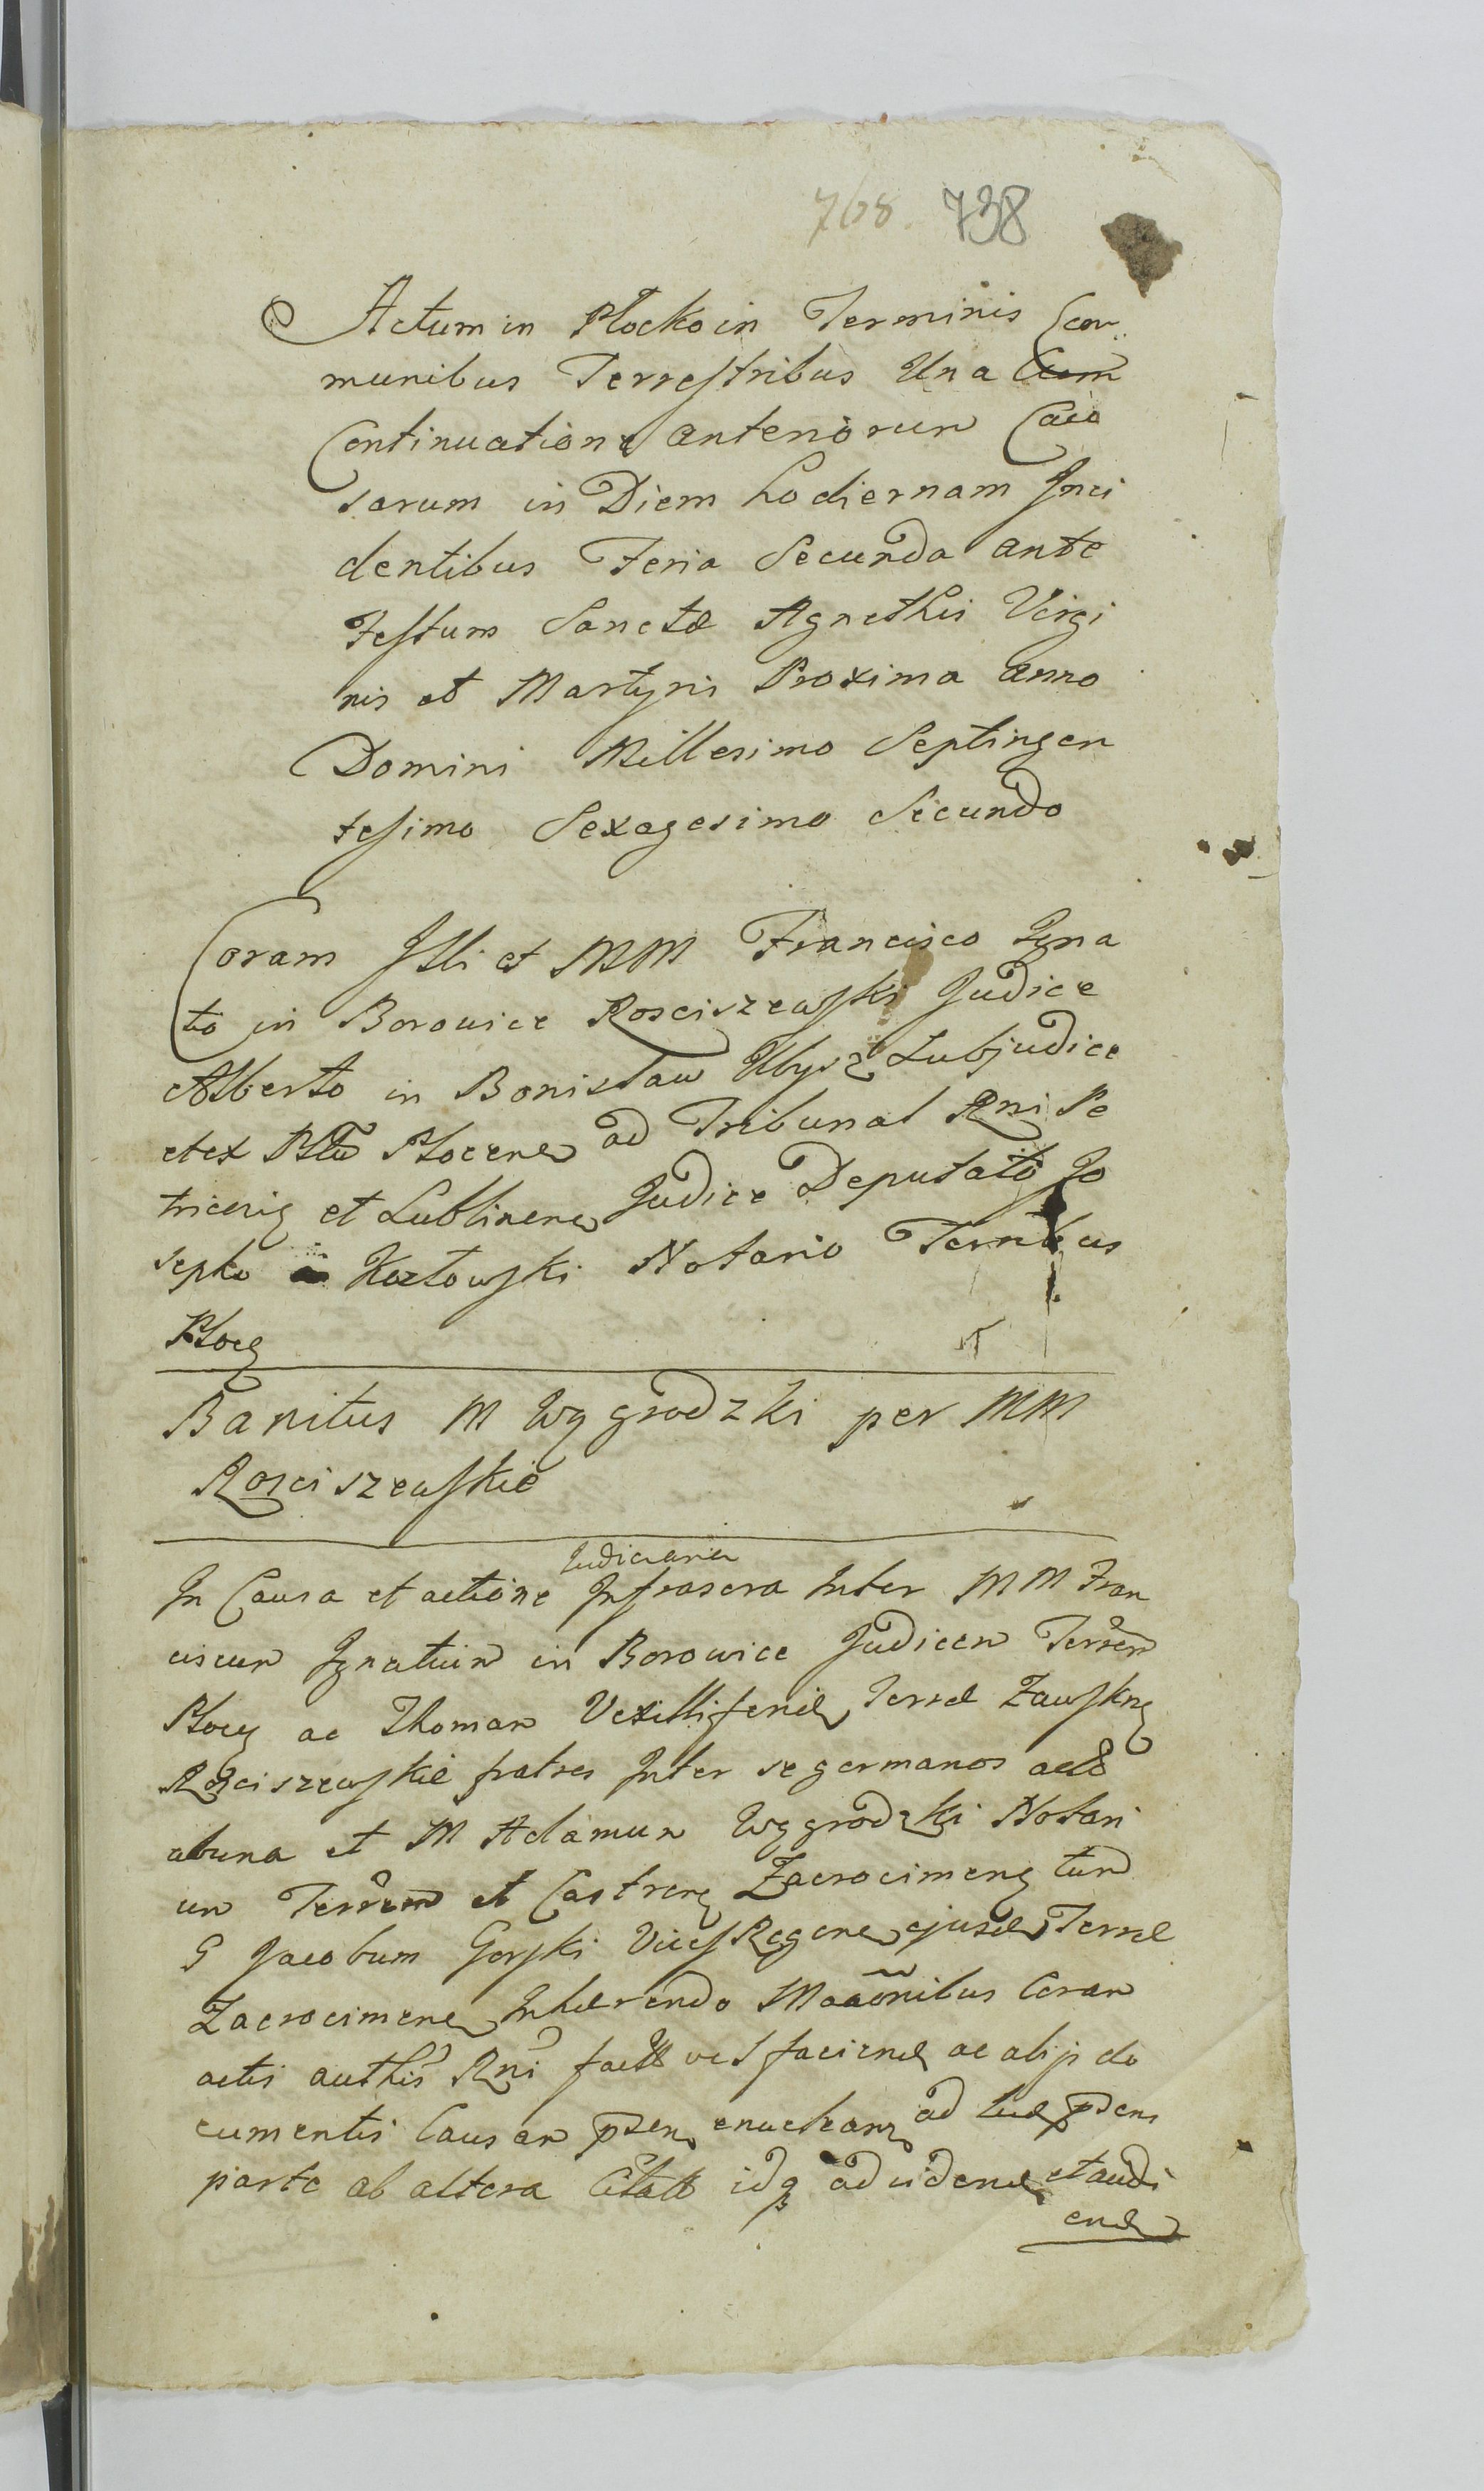 768. 738
Actum in Płocko in Terminis Com
munibus Terrestribus Una Cum
Continuatione anteriorum Cau
sarum in Diem hodiernam Inci
dentibus Feria Secunda ante
Festum Sanctæ Agnethis Virgi
nis et Martyris Proxima anno
Domini Millesimo Septingen
tesimo Sexagesimo Secundo
Coram Illi et MM Francisco Igna
tio in Borowice Rosciszewski Judice
Alberto in Bonisław Ubysz Subjudice
et ex Pltu Plocen ad Tribunal Rni Pe
tricovien et Lublinen Judice Deputato Jo
sepho Kozłowski Notario Terribus
Płocen
Banitus M Wygrodzki per MM
Rosciszewskie
Judiciaria
In Causa et actione Infrascra Inter MM Fran
ciscum Ignatium in Borowice Judicem Terrem
Płocen ac Thoman Vexilliferid Terræ Zawskrz
Rosciszewskie fratres Inter se germanos acto
abuna et M Adamum Wygrodzki Notari
um Terrem et Castren Zacrocimen tum
G Jacobum Gorski Vices Regen ejusd Terræ
Zacrocimen Inhærendo Maaonibus Coram
actis authis Rni factt vel faciend ac alijs do
cumentis Causam psen enuclean ad psens
parte ab altera Citatt idq ad vidend et audi
end